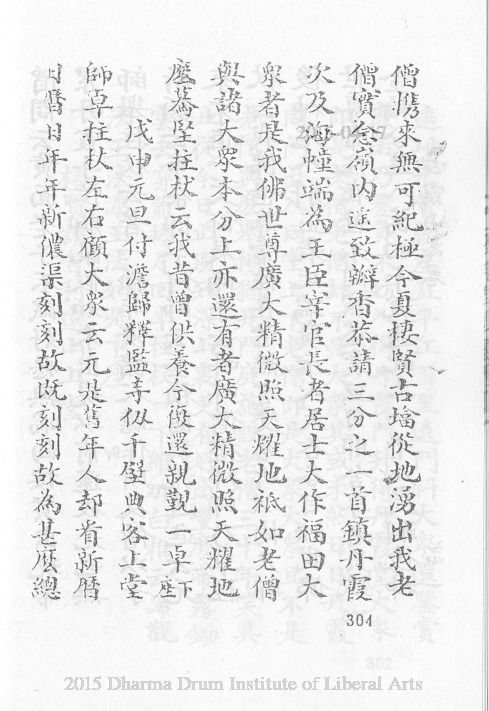 僧攜來無可紀極今夏棲賢古墖從地湧出我老
僧實念嶺內遠致辦香恭請三分之一首鎮丹霞
次及海幢端為王臣宰官長者居士大作福田大
衆者是我佛世尊廣大精微照天耀地祇如老僧
與諸大衆本分上亦還有者廣大精微照天耀地
麼驀竪拄杖云我昔曾供養今復還親覲一卓下座
戊申元旦付澹歸釋監寺仙千壁典客上堂
師卓拄杖左右顧大衆云元是舊年人却看新曆
日曆日年年新儂渠刻刻故既刻刻故為甚麼總
304
2015 Dharma Drum Institute of Liberal Arts